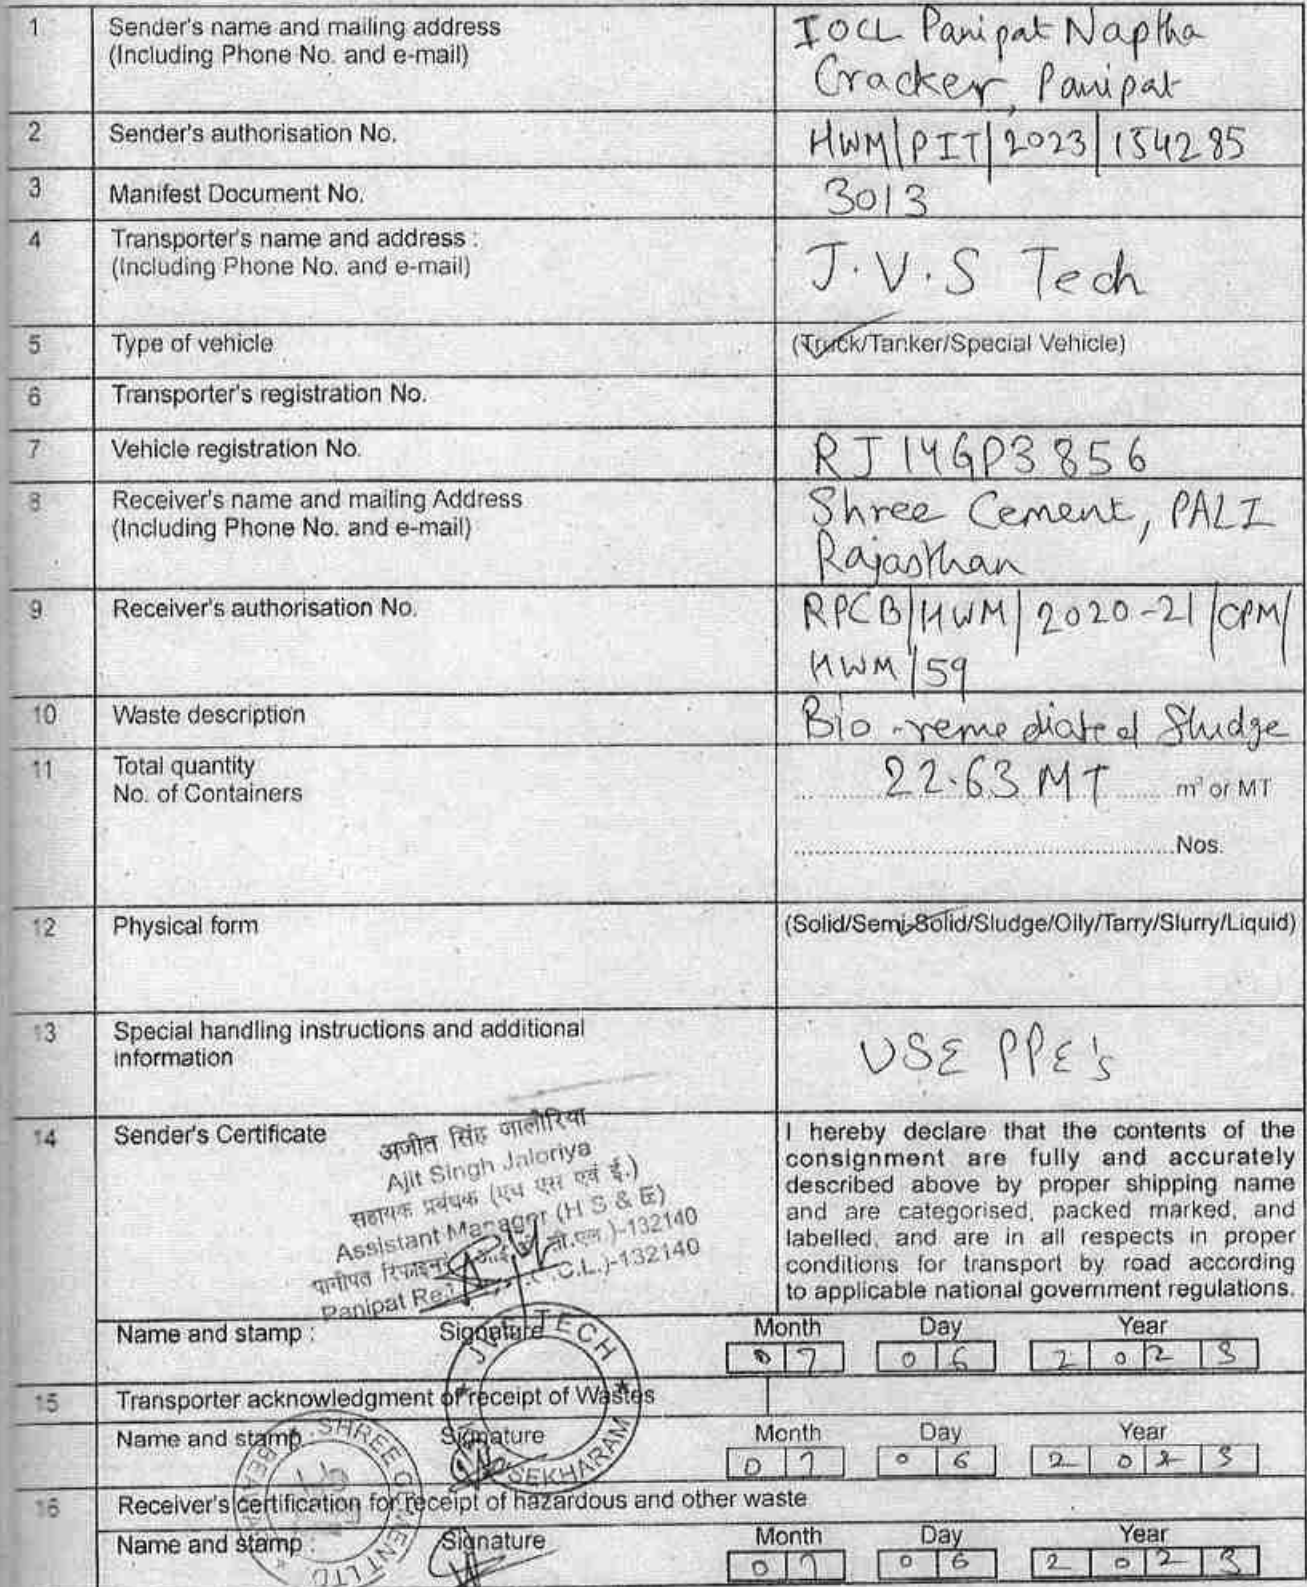 1 Sender's name and mailing address IOCL Panipat Naptha
(Including Phone No. and e-mail) Cracker, Panipat
2 Sender's authorisation No. HWM|PIT|2023|154285
3 Manifest Document No. 3013
4 Transporter's name and address :
(Including Phone No. and e-mail) J.V.S Tech
5 Type of vehicle (Truck/Tanker/Special Vehicle)
6 Transporter's registration No.
7 Vehicle registration No. RJ14GP3856
8 Receiver's name and mailing Address Shree Cement, PALI
(Including Phone No. and e-mail) Rajasthan
9 Receiver's authorisation No. RPCB|HWM|2020-21|CPM/
HWM/59
10 Waste description Bio-remediated Sludge
11 Total quantity 22.63 MT m³ or MT
No. of Containers
Nos.
12 Physical form (Solid/Semi-Solid/Sludge/Oily/Tarry/Slurry/Liquid)
13 Special handling instructions and additional
information USE PPE's
14 Sender's Certificate
अजीत सिंह जालोरिया
Ajit Singh Jaloriya
सहायक प्रबंधक (एच एस एवं ई.)
Assistant Manager (H S & E)
पानीपत .)-132140
Panipat .C.L.)-132140
I hereby declare that the contents of the
consignment are fully and accurately
described above by proper shipping name
and are categorised, packed marked, and
labelled, and are in all respects in proper
conditions for transport by road according
to applicable national government regulations.
Name and stamp : Signature Month Day Year
07 06 2023
TECH
SEKHARAM
15 Transporter acknowledgment of receipt of Wastes
Name and stamp Signature Month Day Year
07 06 2023
SHREE CEMENT LTD
16 Receiver's certification for receipt of hazardous and other waste
Name and stamp : Signature Month Day Year
07 06 2023